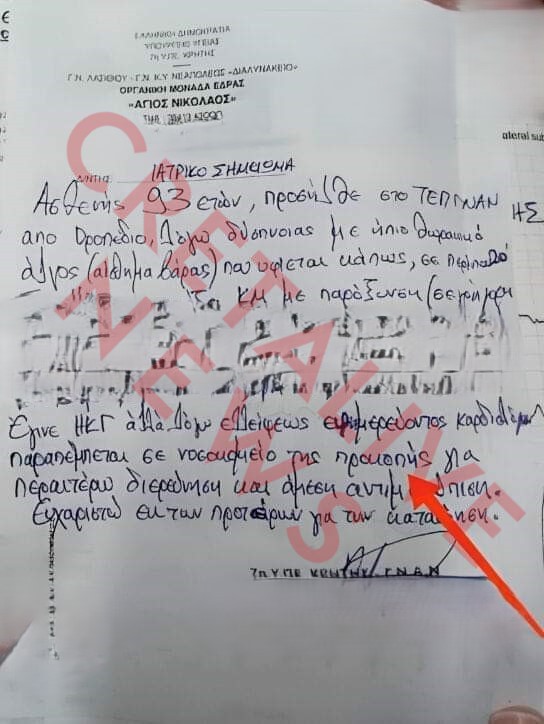 ΕΛΛΗΝΙΚΗ ΔΗΜΟΚΡΑΤΙΑ
ΥΠΟΥΡΓΕΙΟ ΥΓΕΙΑΣ
7η Υ.ΠΕ. ΚΡΗΤΗΣ
Γ.Ν. ΛΑΣΙΘΙΟΥ - Γ.Ν. Κ.Υ ΝΕΑΠΟΛΕΩΣ «ΔΙΑΛΥΝΑΚΕΙΟ»
ΟΡΓΑΝΙΚΗ ΜΟΝΑΔΑ ΕΔΡΑΣ
«ΑΓΙΟΣ ΝΙΚΟΛΑΟΣ»
ateral sub
ΙΑΤΡΙΚΟ ΣΗΜΕΙΩΜΑ
Ασθενής 93 ετών, προσήλθε στο ΤΕΠ ΓΝΑΝ
ΗΣ
απο Οροπέδιο, λόγω δύσπνοιας με ήπιο θωρακικό
άλγος (αίσθημα βάρος) που υφίεται κάπως, σε
ΚΜ με παρόξυνση
Έγινε ΗΚΓ αλλά λόγω ελλείψεως εφημερεύοντος
παραπέμπεται σε νοσοκομείο της προκοπής για
περαιτέρω διερεύνηση και άμεση
Ευχαριστώ εκ των προτέρων για την κατανόηση.
7η ΥΠΕ ΚΡΗΤΗΣ Γ.Ν.Α.Ν
CRETALIVE
NEWS